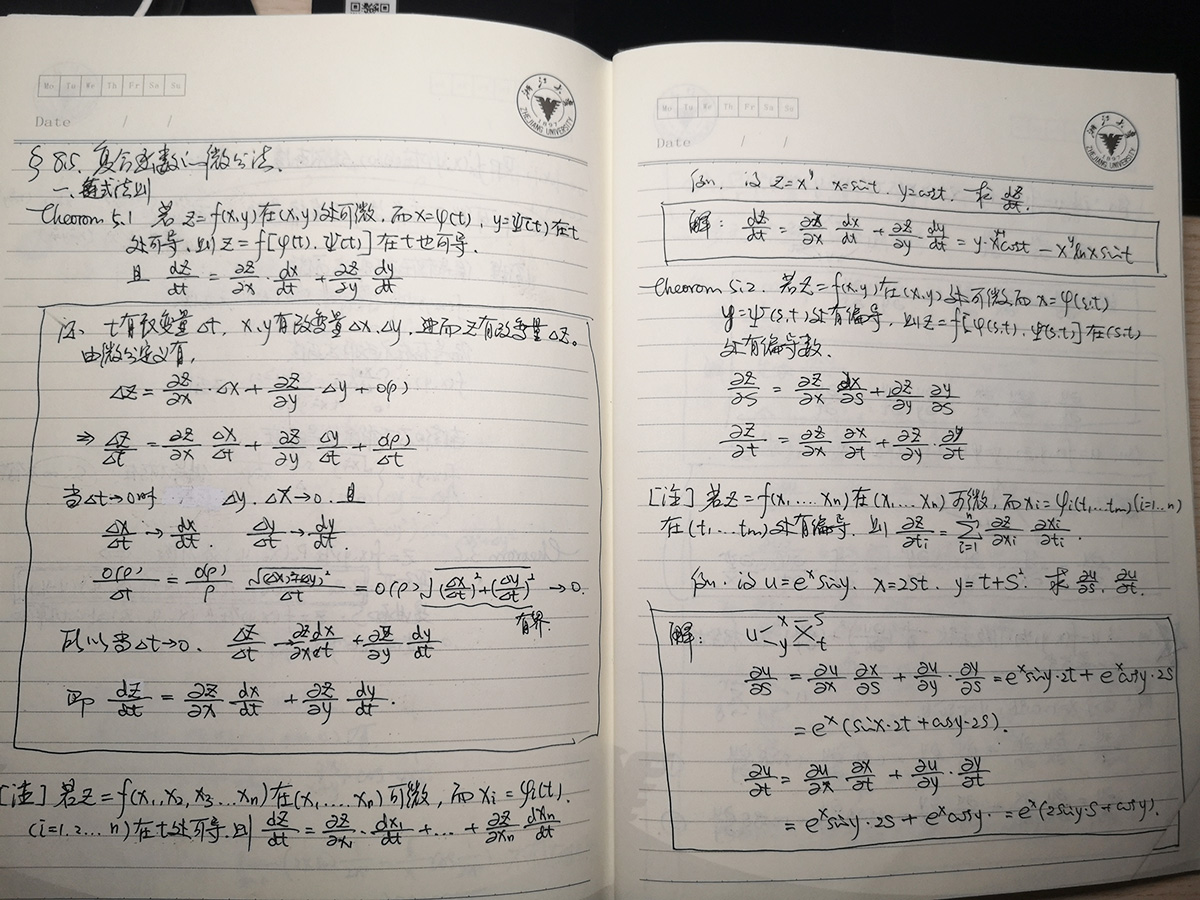 Mo Tu We Th Fr Sa Su
Date / /
浙江大学
1897
ZHEJIANG UNIVERSITY
§ 8.5. 复合函数的微分法.
一. 链式法则
Theorem 5.1 若 z=f(x,y)在(x,y)处可微, 而x=φ(t), y=ψ(t)在t
处可导, 则z=f[φ(t), ψ(t)]在t也可导.
且 dz/dt = ∂z/∂x · dx/dt + ∂z/∂y dy/dt
t有改变量Δt, x.y有改变量Δx,Δy, 进而z有改变量Δz。
由微分定义有,
Δz = ∂z/∂x · Δx + ∂z/∂y Δy + o(ρ)
⇒ Δz/Δt = ∂z/∂x Δx/Δt + ∂z/∂y Δy/Δt + o(ρ)/Δt
当Δt→0时, Δy. Δx→0. 且
Δx/Δt → dx/dt. Δy/Δt → dy/dt.
o(ρ)/Δt = o(ρ)/ρ √((Δx)²+(Δy)²)/Δt = o(ρ) √((Δx/Δt)²+(Δy/Δt)²) → 0.
有界.
所以当Δt→0. Δz/Δt → ∂z/∂x dx/dt + ∂z/∂y dy/dt
即 dz/dt = ∂z/∂x dx/dt + ∂z/∂y dy/dt.
[注] 若z=f(x₁,x₂,x₃...xₙ)在(x₁,...xₙ)可微, 而xᵢ=φᵢ(t).
(i=1.2...n)在t处可导. 则 dz/dt = ∂z/∂x₁ · dx₁/dt + ... + ∂z/∂xₙ dxₙ/dt
Mo Tu We Th Fr Sa Su
Date / /
浙江大学
1897
ZHEJIANG UNIVERSITY
例. 设 z=x^y. x=sint. y=cost. 求 dz/dt.
解: dz/dt = ∂z/∂x dx/dt + ∂z/∂y dy/dt = y·x^(y-1)cost − x^y lnx sint
Theorem 5.2. 若z=f(x,y)在(x,y)处可微,而x=φ(s,t)
y=ψ(s,t)处有偏导, 则z=f[φ(s,t), ψ(s,t)]在(s,t)
处有偏导数.
∂z/∂s = ∂z/∂x ∂x/∂s + ∂z/∂y ∂y/∂s
∂z/∂t = ∂z/∂x ∂x/∂t + ∂z/∂y · ∂y/∂t
[注] 若z=f(x₁...xₙ)在(x₁...xₙ)可微, 而xᵢ=φᵢ(t₁...tₘ)(i=1...n)
在(t₁...tₘ)处有偏导. 则 ∂z/∂tᵢ = Σ_(i=1)^n ∂z/∂xᵢ ∂xᵢ/∂tᵢ.
例. 设u=e^x siny. x=2st. y=t+s². 求 ∂u/∂s. ∂u/∂t.
解: u < x y s t
∂u/∂s = ∂u/∂x ∂x/∂s + ∂u/∂y · ∂y/∂s = e^x siny·2t + e^x cosy·2s
= e^x(sinx·2t+cosy·2s).
∂u/∂t = ∂u/∂x ∂x/∂t + ∂u/∂y · ∂y/∂t
= e^x siny·2s + e^x cosy. = e^x(2siny·s+cosy).